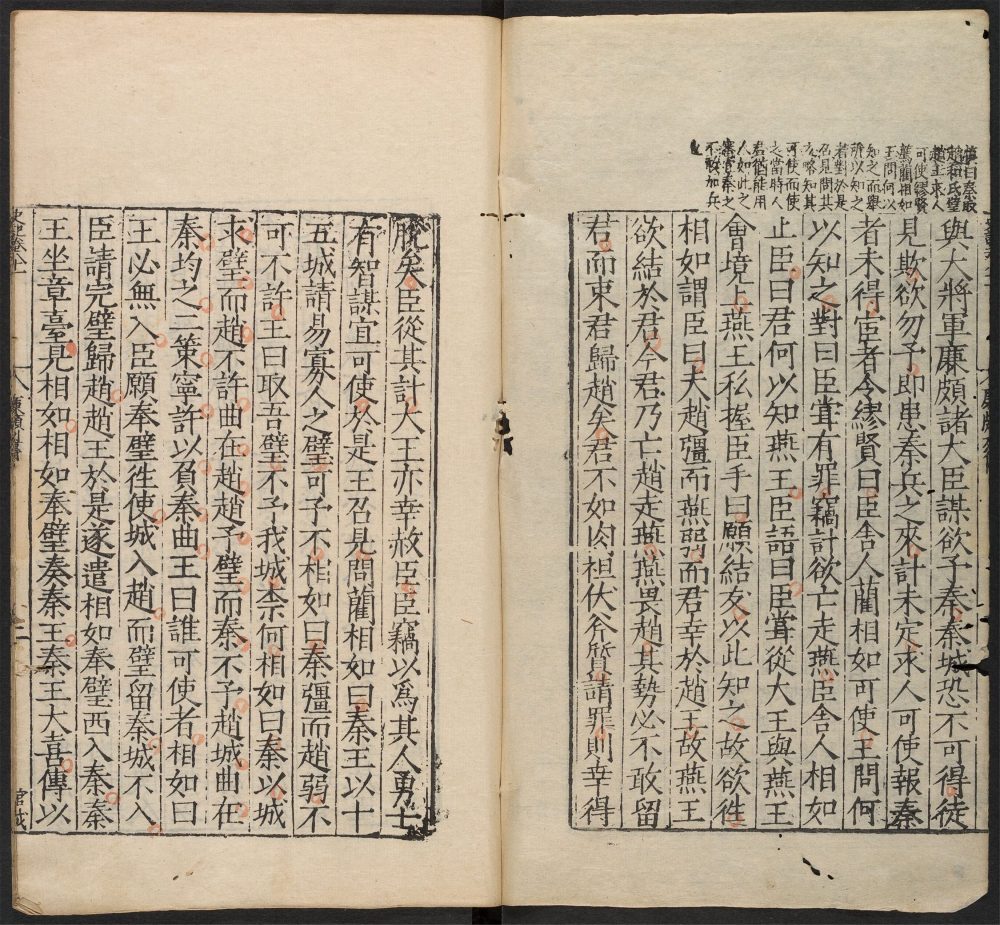 曰秦欲
趙和氏璧
趙王求人
可使繆賢
薦藺相如
王問何以
知之而舉
所以知之
者對於是
召見問其
方略知其
可使而使
之當時人
君猶能用
人如此之
審宜秦之
不敢加兵
與大將軍廉頗諸大臣謀欲予秦秦城恐不可得徒
見欺欲勿予即患秦兵之來計未定求人可使報秦
者未得宦者令繆賢曰臣舍人藺相如可使王問何
以知之對曰臣嘗有罪竊計欲亡走燕臣舍人相如
止臣曰君何以知燕王臣語曰臣嘗從大王與燕王
會境上燕王私握臣手曰願結友以此知之故欲徃
相如謂臣曰夫趙彊而燕弱而君幸於趙王故燕王
欲結於君今君乃亡趙走燕燕畏趙其勢必不敢留
君而束君歸趙矣君不如肉袒伏斧質請罪則幸得
脫矣臣從其計大王亦幸赦臣臣竊以爲其人勇士
有智謀宜可使於是王召見問藺相如曰秦王以十
五城請易寡人之璧可予不相如曰秦彊而趙弱不
可不許王曰取吾璧不予我城柰何相如曰秦以城
求璧而趙不許曲在趙趙予璧而秦不予趙城曲在
秦均之二策寧許以負秦曲王曰誰可使者相如曰
王必無人臣願奉璧徃使城入趙而璧留秦城不入
臣請完璧歸趙趙王於是遂遣相如奉璧西入秦秦
王坐章臺見相如相如奉璧奏秦王秦王大喜傳以